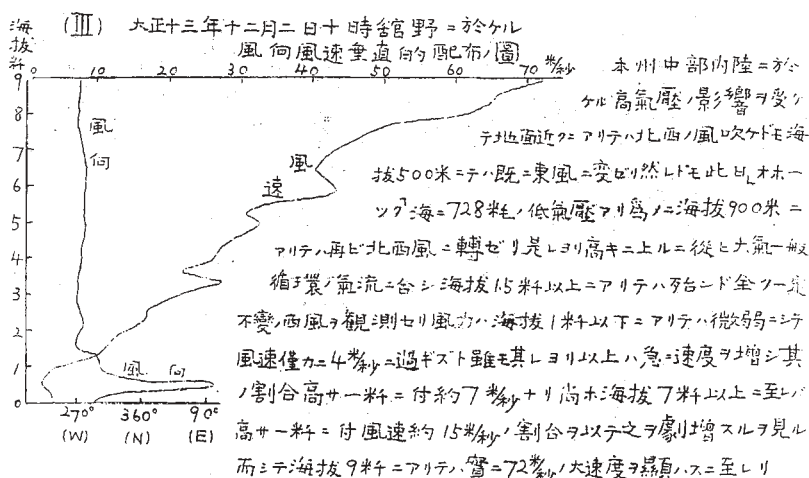 (III) 大正十三年十二月二日十時舘野ニ於ケル
風向風速垂直的配布ノ圖
海拔粁
0 10 20 30 40 50 60 70 米/秒
9
8
7
6
5
4
3
2
1
0
風向
風速
風向
270° 360° 90°
(W) (N) (E)
本州中部内陸ニ於
ケル高氣壓ノ影響ヲ受ケ
テ地面近クニアリテハ北西ノ風吹ケドモ海
拔500米ニテハ既ニ東風ニ変ゼリ然レドモ此日オホー
ツク海ニ728粍ノ低氣壓アリ爲メニ海拔900米ニ
アリテハ再ビ北西風ニ轉ゼリ是レヨリ高キニ上ルニ從ヒ大氣一般
循環ノ氣流ニ合シ海拔1.5粁以上ニアリテハ殆ンド全ク一定
不變ノ西風ヲ観測セリ風力ハ海拔1粁以下ニアリテハ微弱ニシテ
風速僅カニ4米/秒ニ過ギズト雖モ其レヨリ以上ハ急ニ速度ヲ増シ其
ノ割合高サ一粁ニ付約7米/秒ナリ尚ホ海拔7粁以上ニ至レバ
高サ一粁ニ付風速約15米/秒ノ割合ヲ以テ之ヲ劇増スルヲ見ル
而シテ海拔9粁ニアリテハ實ニ72米/秒ノ大速度ヲ顯ハスニ至レリ